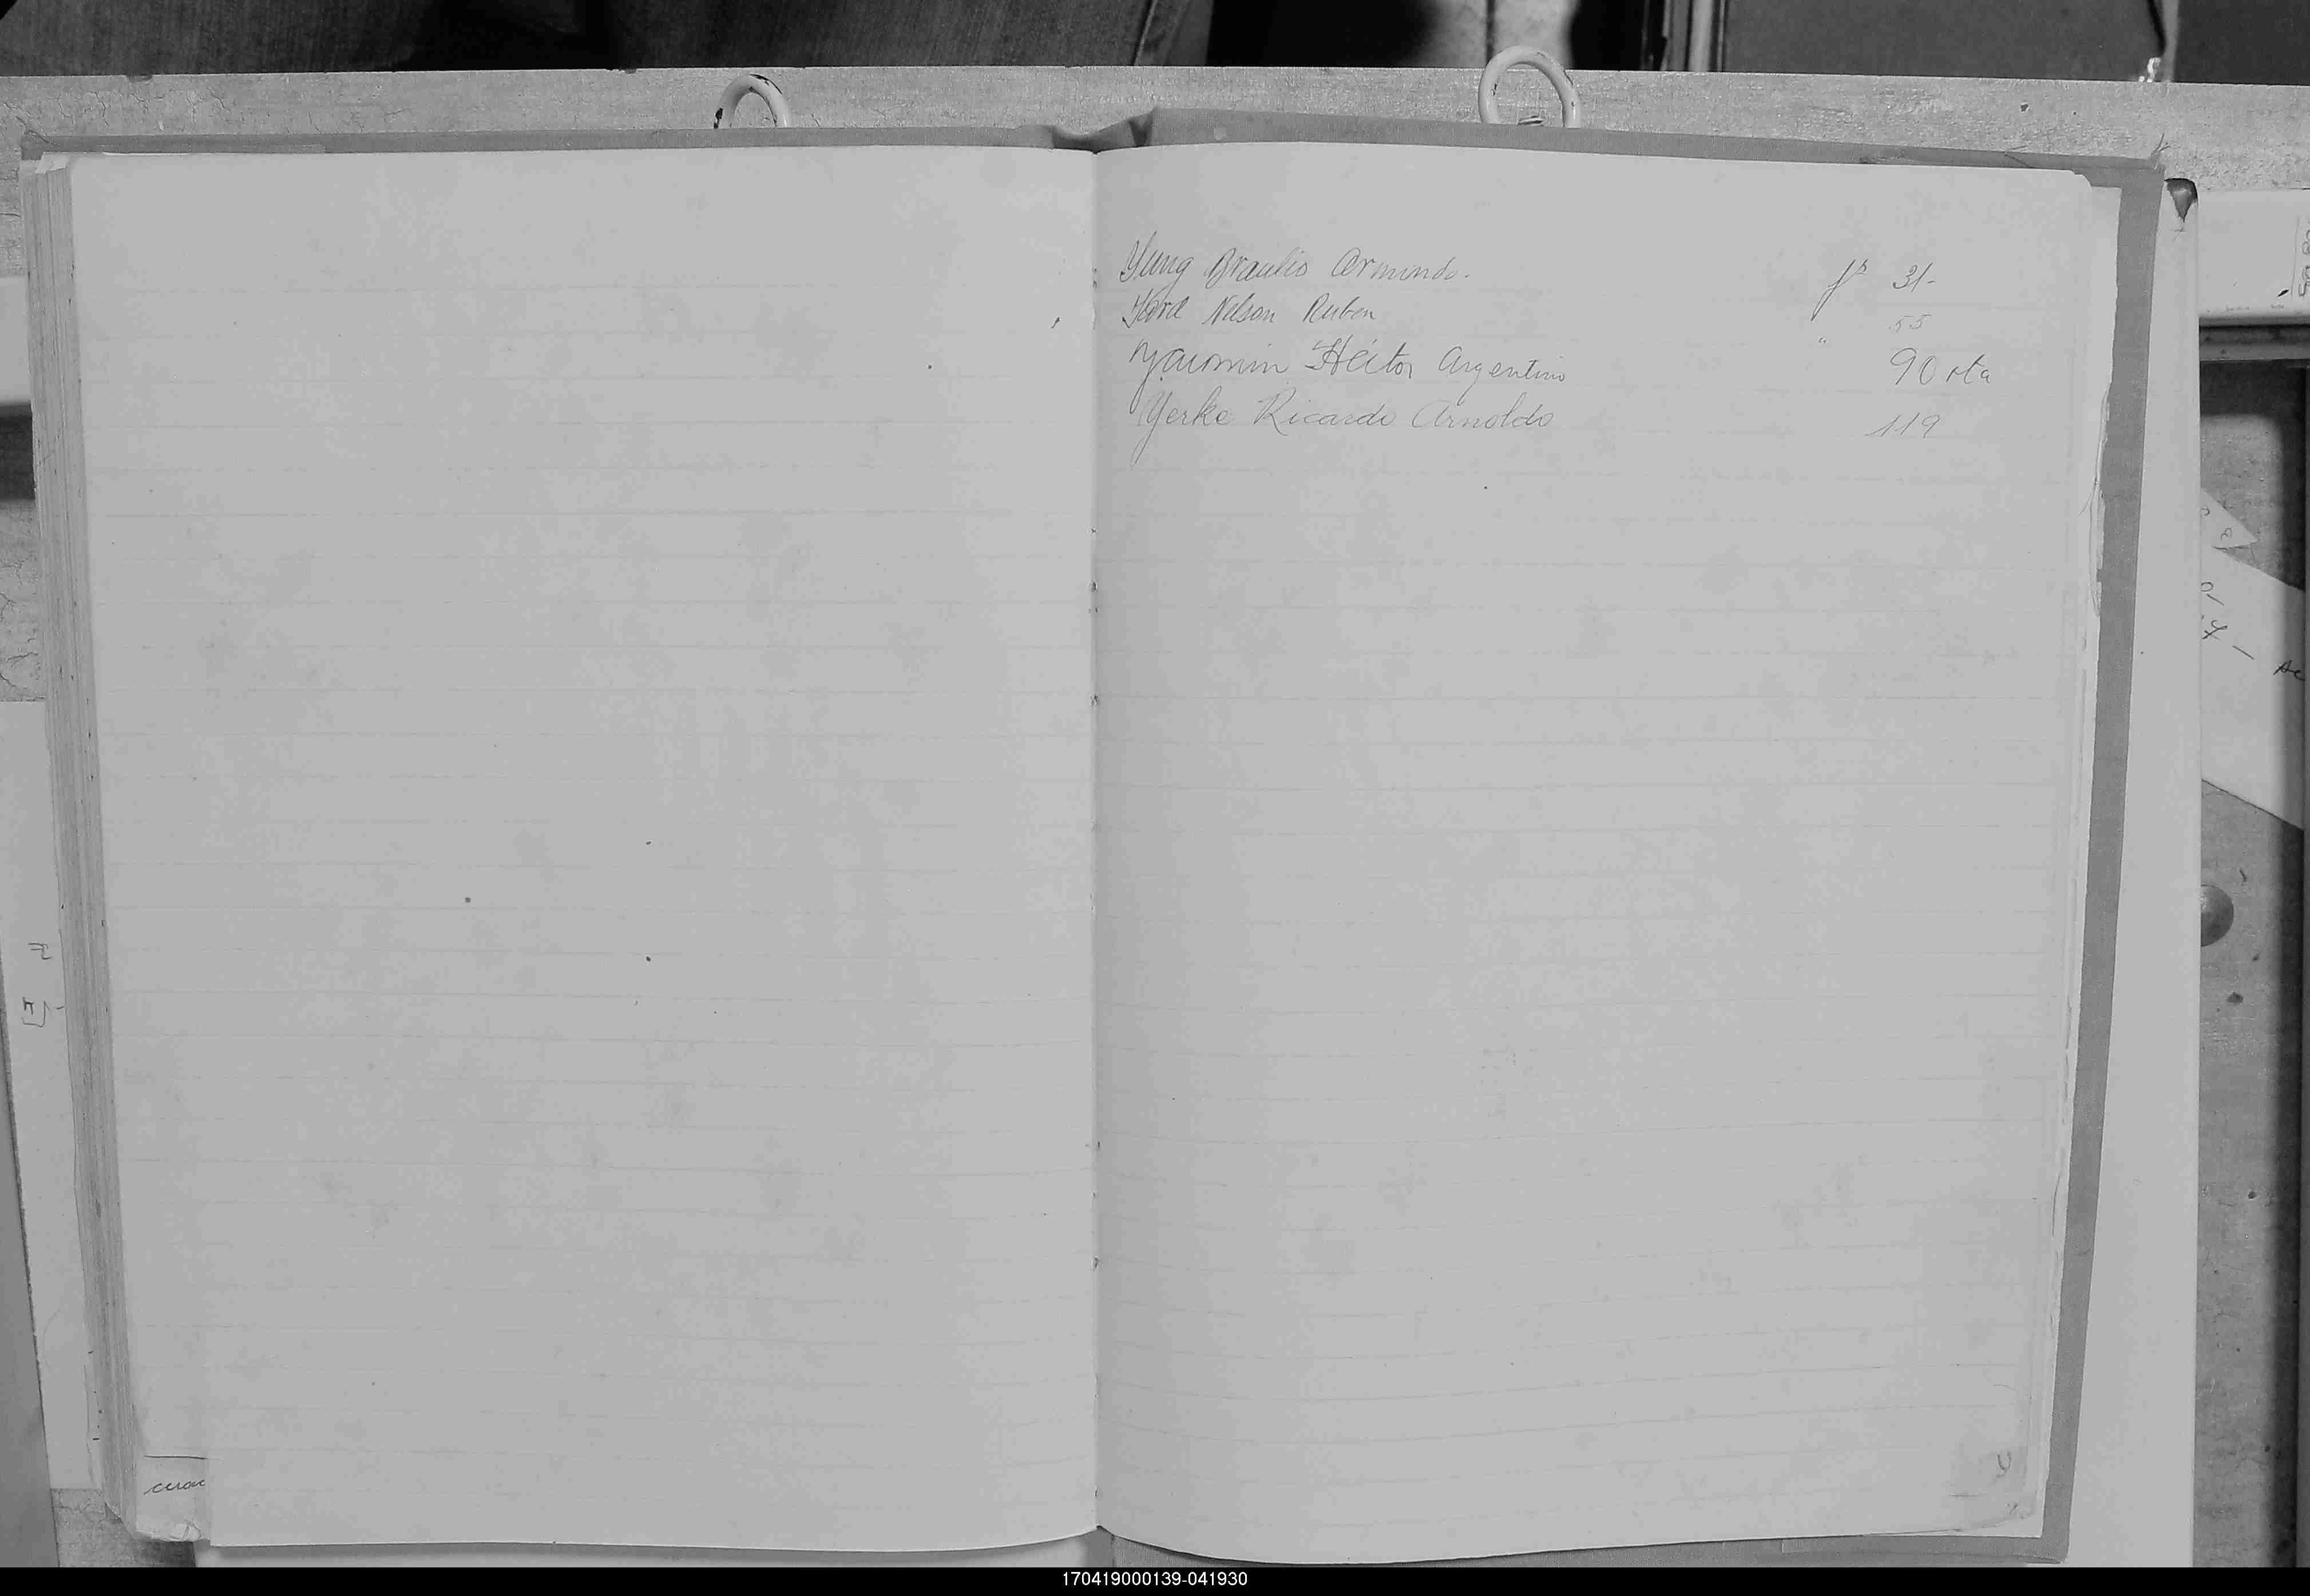 Yung Braulio Armando. fs 31-
Nelson Ruben 55
Héctor Argentino " 90 vta
Yerke Ricardo Arnoldo 119
Y
170419000139-041930